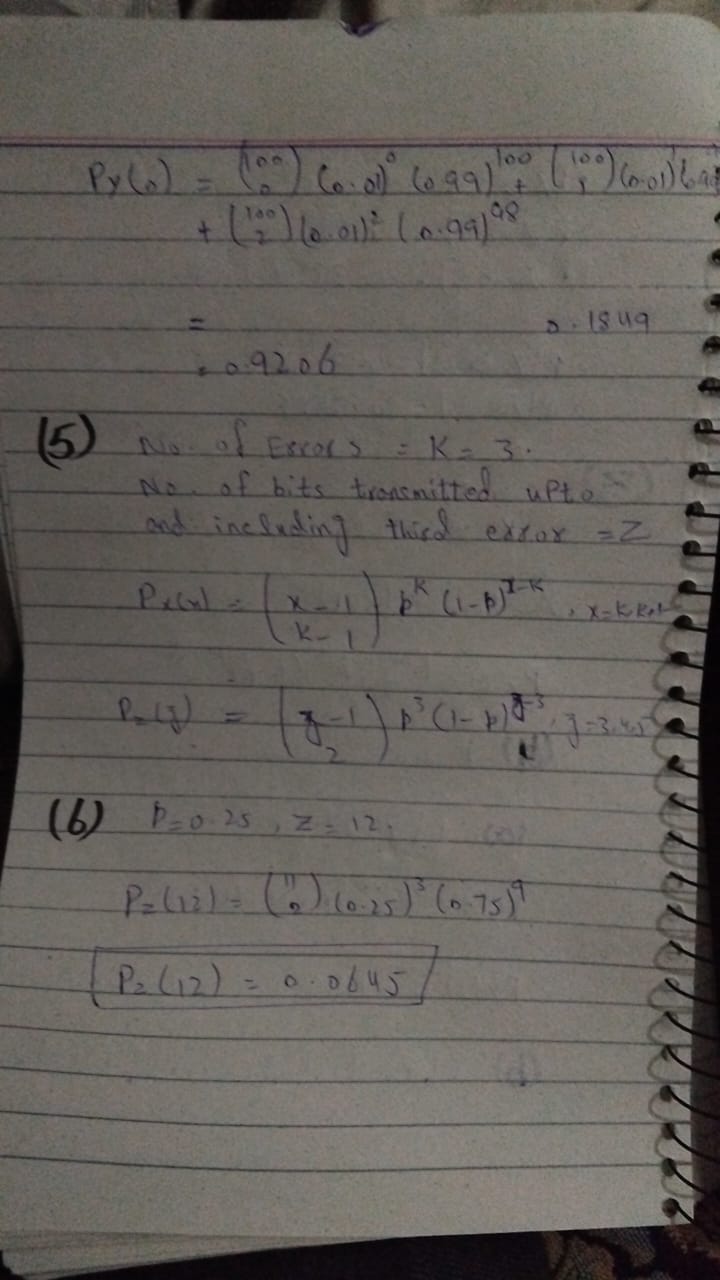 Py(0) = (100 0) (0.01)^0 (0.99)^100 + (100 1) (0.01)^1 (0.99
+ (100 2) (0.01)^2 (0.99)^98
= 0.1849
= 0.9206
(5) No. of Errors = K = 3.
No. of bits transmitted upto
and including third error = Z
Px(x) = (x-1 k-1) p^k (1-p)^x-k, x=k, k+1
Pz(z) = (z-1 2) p^3 (1-p)^z-3, z=3,4,5
(6) P=0.25, Z=12.
Pz(12) = (11 2) (0.25)^3 (0.75)^9
Pz(12) = 0.0645